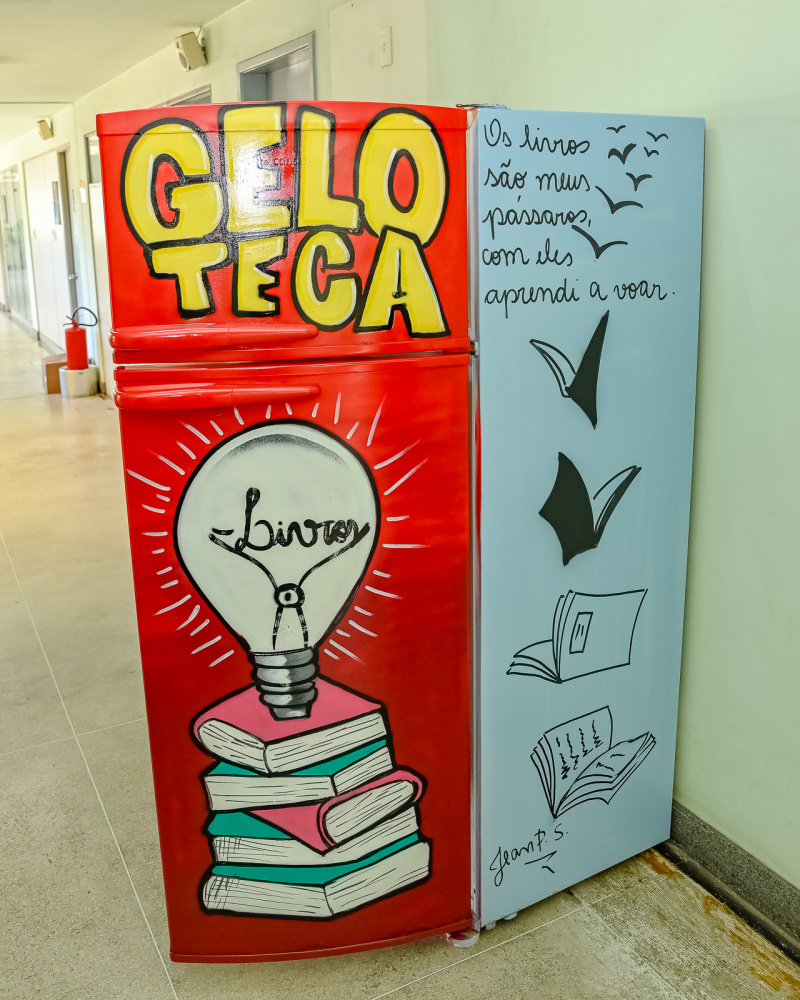 GELO
TECA
Livros
Os livros
são meus
pássaros,
com eles
aprendi a voar.
Jean P. S.